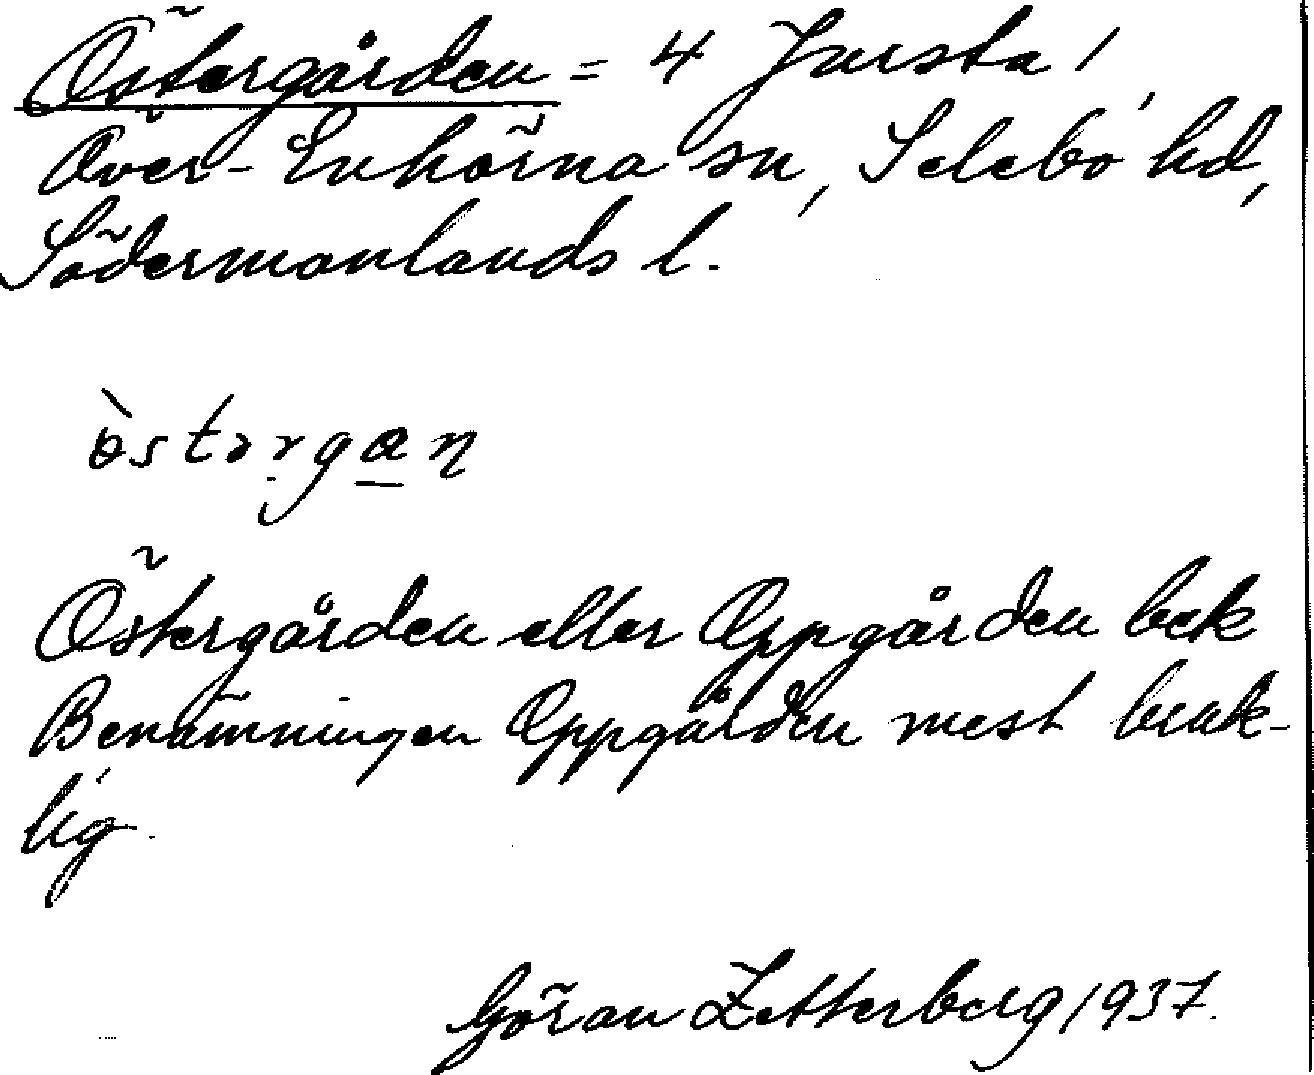 Östergården = 4 Jursta 1
Över-Enhörna sn, Selebo hd,
Södermanlands l.
Östergården eller Oppgården bek
Benämningen Oppgården mest bruk-
lig.
Göran Zetterberg 1937.